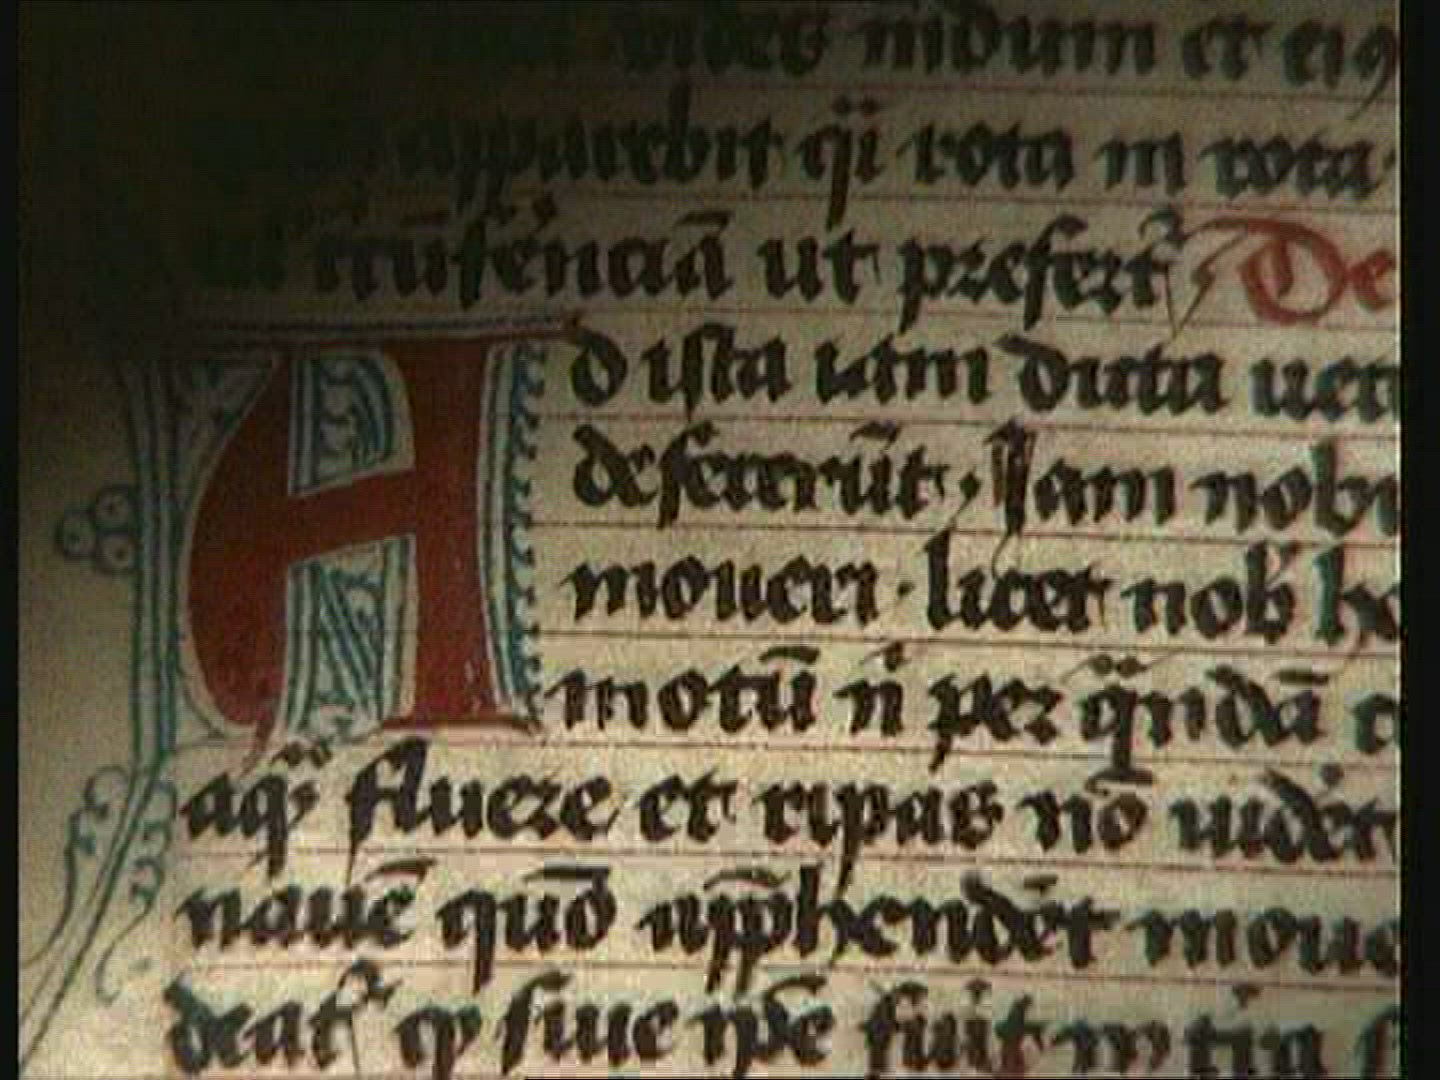 mūdum et ei9
apparebit q̈i rota in rota
cūfe'nciā ut prefert᷑ De
Ad ista iam dicta uete
defecerūt. Iam nobi
moueri. licet nob' ho
motū n' per q̈ndā c
aq̈ fluere et ripas nō uider'
nauē quō app̄hender't moue
deat᷑ ꝙ siue ip̄e fuit in t